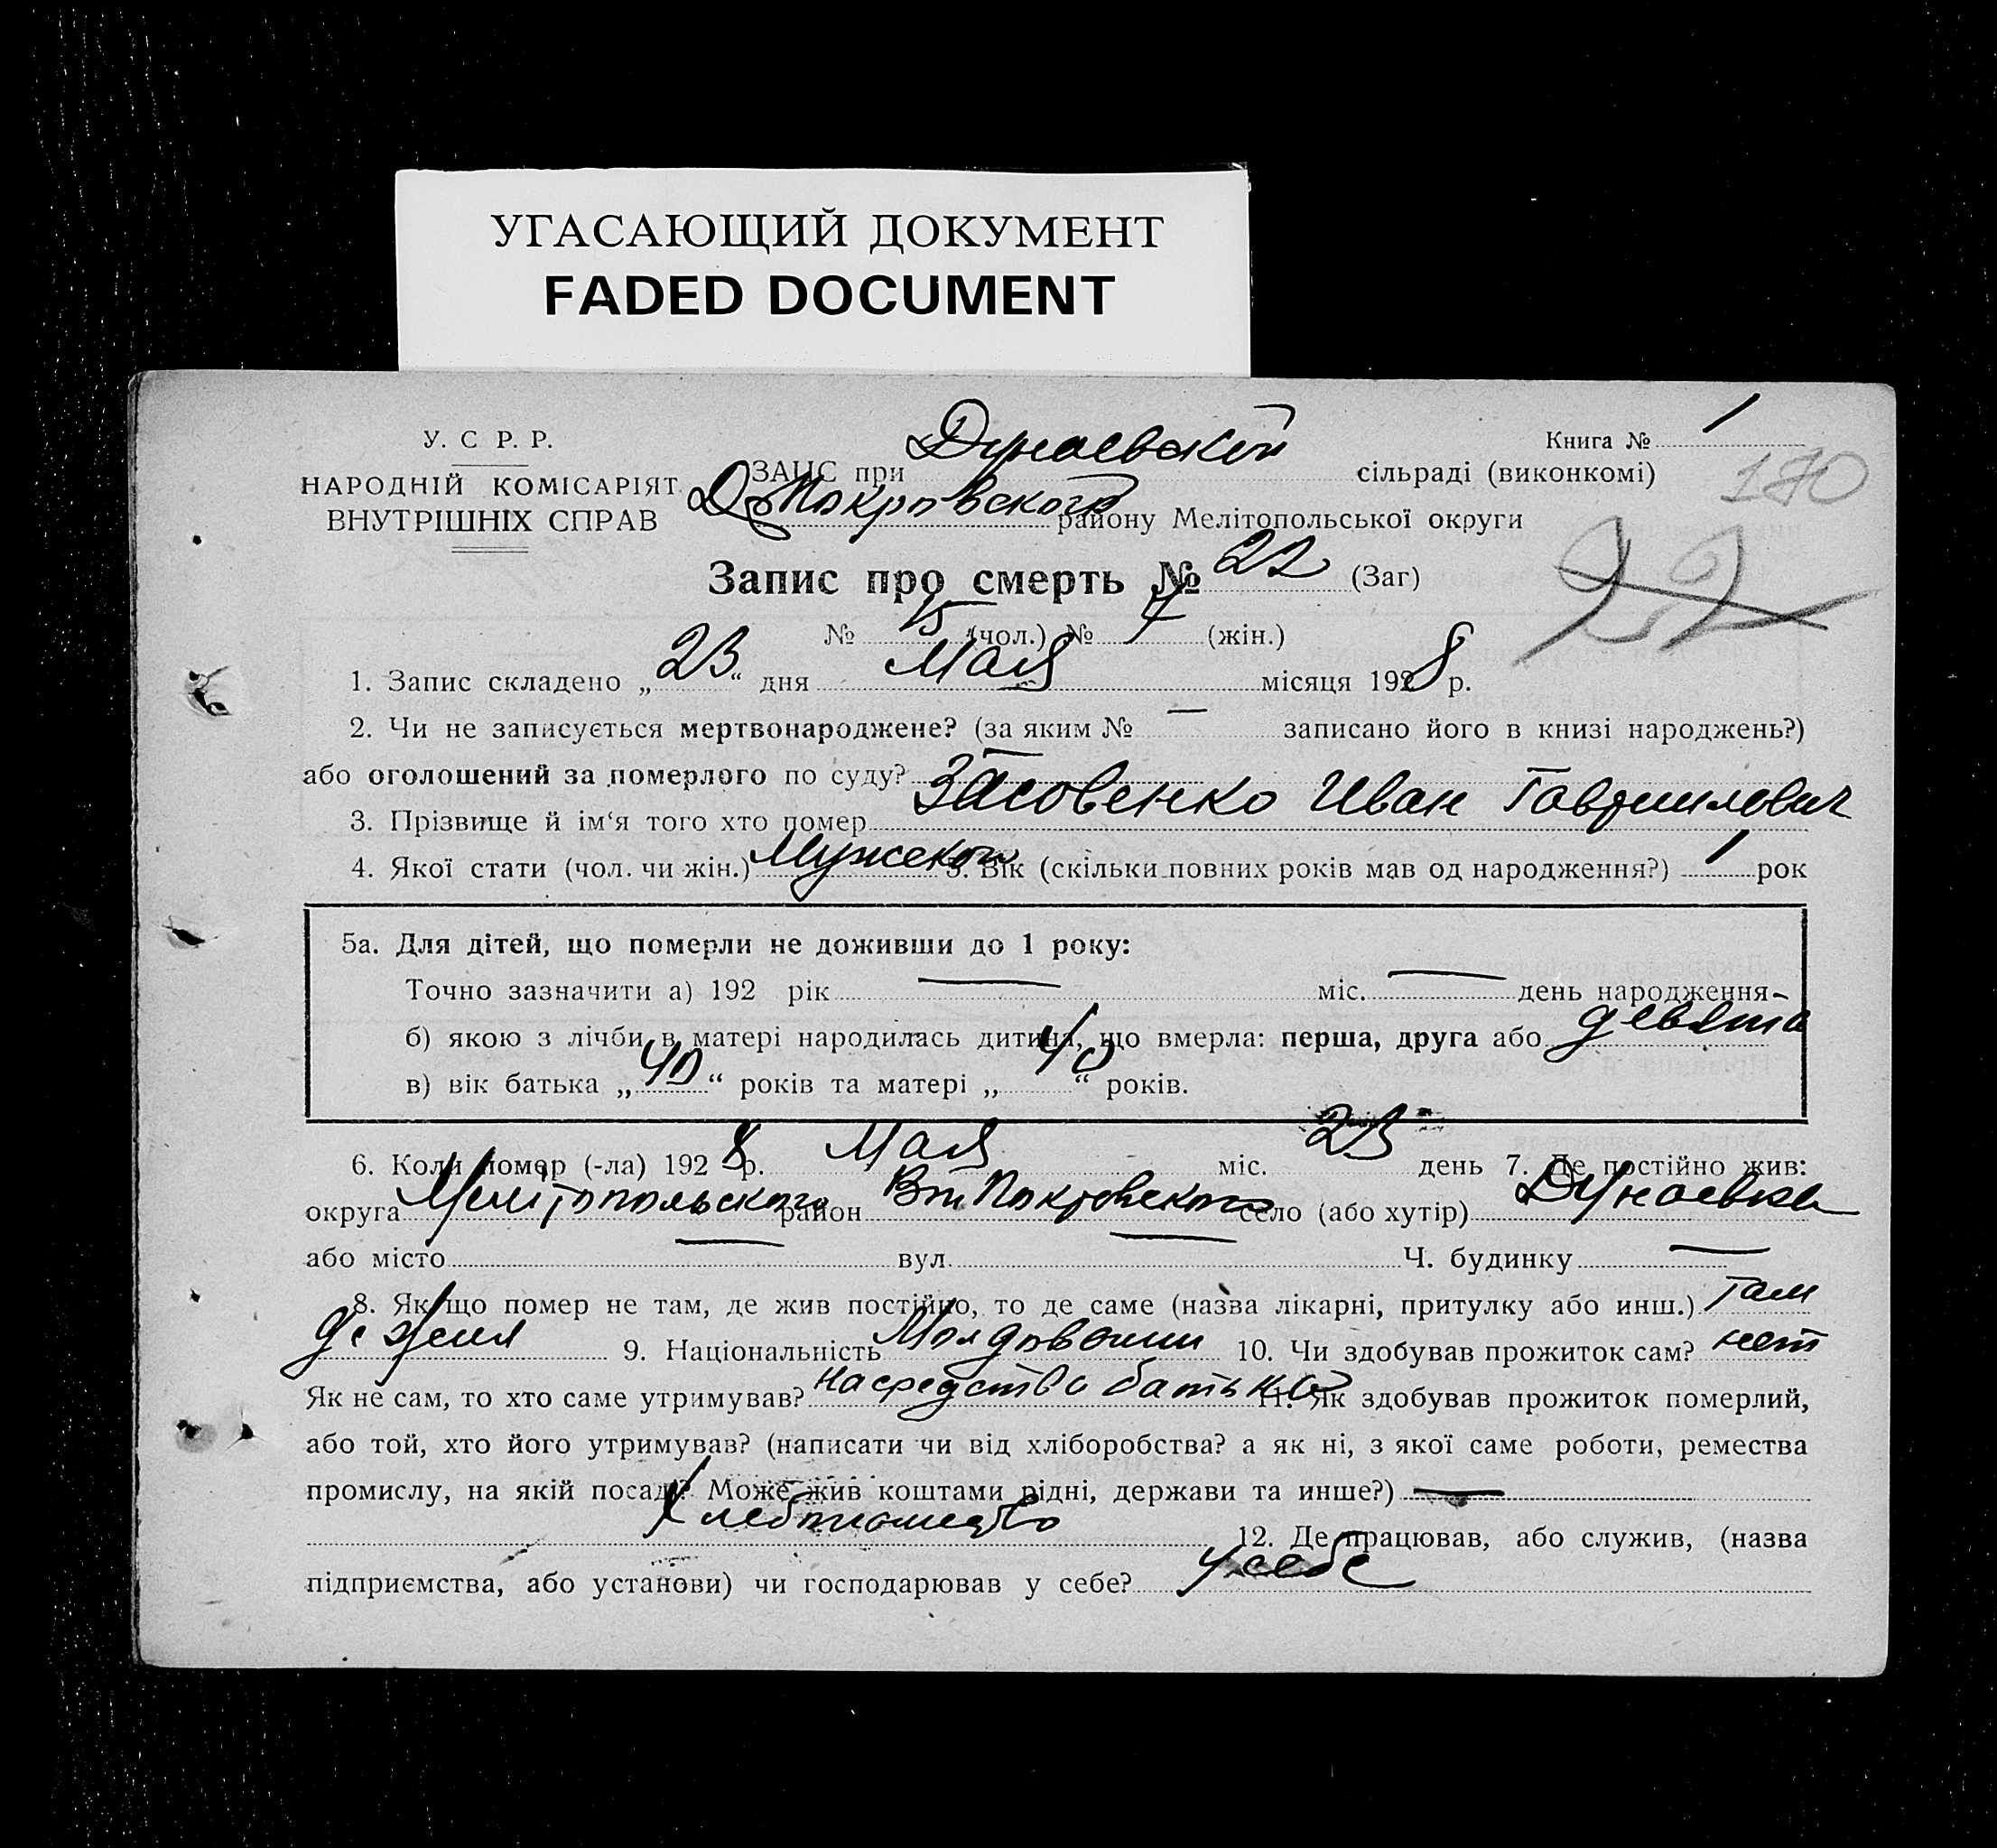 УГАСАЮЩИЙ ДОКУМЕНТ
FADED DOCUMENT
У. С Р. Р.
НАРОДНІЙ КОМІСАРІЯТ
ВНУТРІШНІХ СПРАВ
Книга № 1
170
ЗАЦС при Дунаевской сільраді (виконкомі)
Покровского району Мелітопольської округи
Запис про смерть № 22 (Заг)
22
№ 15 (чол.) № 7 (жін.)
1. Запис складено „23“ дня Мая місяця 1928 р.
2. Чи не записується мертвонароджене? (за яким № — записано його в книзі народжень?)
або оголошений за померлого по суду? —
3. Прізвище й ім‘я того хто помер Засовенко Иван Гаврилович
4. Якої стати (чол. чи жін.) Мужской 5. Вік (скільки повних років мав од народження?) 1 рок
5а. Для дітей, що померли не доживши до 1 року:
Точно зазначити а) 192 рік — міс. — день народження
б) якою з лічби в матері народилась дитина, що вмерла: перша, друга або девята
в) вік батька „40“ років та матері „40“ років.
6. Коли помер (-ла) 1928 р. Мая міс. 23 день 7. Де постійно жив:
округа Мелітопольского район Вт Покровского село (або хутір) Дунаевка
або місто — вул. — Ч. будинку —
8. Якщо помер не там, де жив постійно, то де саме (назва лікарні, притулку або инш.) там
де жил 9. Національність 10. Чи здобував прожиток сам? нет
Як не сам, то хто саме утримував? на средства батька 11. Як здобував прожиток померлий,
або той, хто його утримував? (написати чи від хліборобства? а як ні, з якої саме роботи, ремества
промислу, на якій посаді? Може жив коштами рідні, держави та инше?) —
12. Де працював, або служив, (назва
підприємства, або установи) чи господарював у себе? У себе